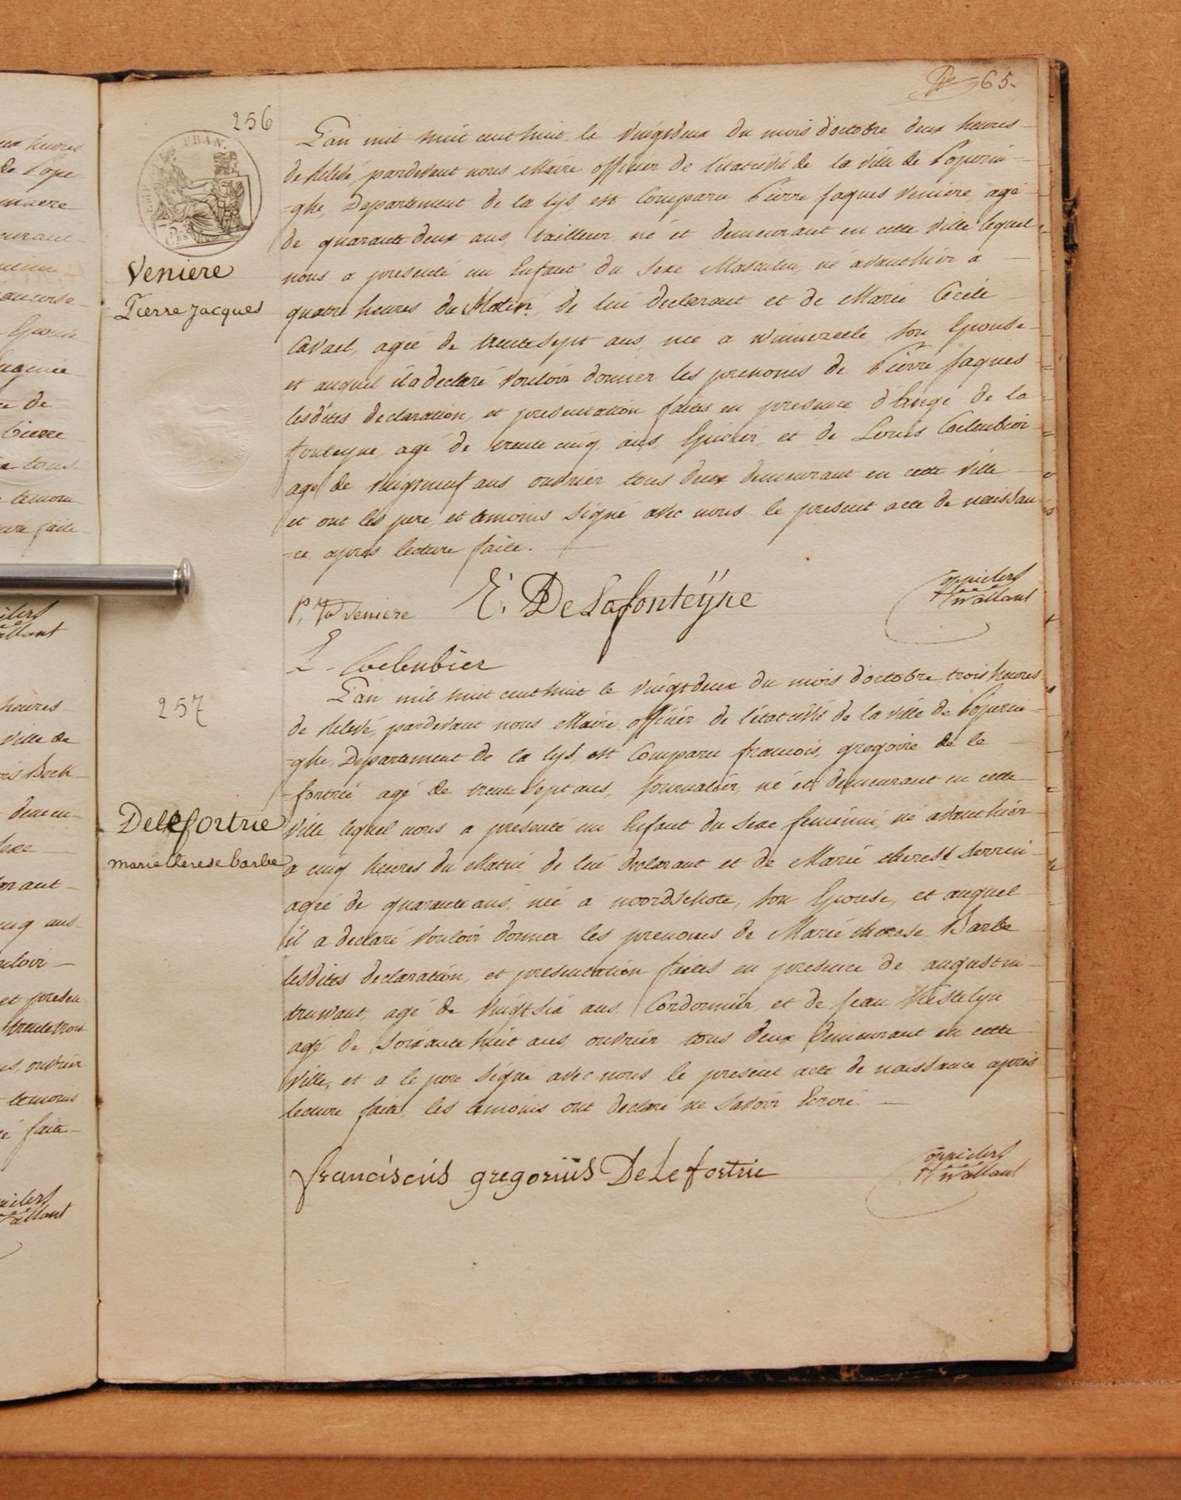 65.
256
L'an mil huit cent huit le vingtdeux du mois d'octobre deux heures
de relevé pardevant nous Maire officier de l'état civil de la ville de Poperin-
-ghe, Departement de la Lys est comparu Pierre Jaques Veniere, agé
de quarante deux ans, tailleur né et demeurant en cette ville lequel
nous a presenté un Enfant du sexe Masculin, né avanthier a
quatre heures du Matin, de lui declarant et de Marie Cecile
agée de trente sept ans, née a son Epouse
et auquel il a declaré vouloir donner les prenoms de Pierre Jaques
lesdites declaration, et presentation faites en presence d'Ange de la
fonteyne agé de trente cinq ans Epicier, et de Louis Coelenbier
agé de vingtneuf ans ouvrier tous deux demeurant en cette ville
et ont les pere, et temoins signé avec nous le present acte de naissan-
-ce, apres lecture faite.
Veniere
Pierre Jacques
P. Ja Veniere E. De Lafonteyne
L. Coelenbier
257
L'an mil huit cent huit le vingtdeux du mois d'octobre trois heures
de relevé, pardevant nous Maire officier de l'état civil de la ville de Poperin-
-ghe, Departement de la Lys, est comparu francois, gregoire de le
fortrié agé de trente sept ans, Journalier, né et demeurant en cette
ville lequel nous a presenté un Enfant du sexe feminin, né avanthier
a cinq heures du Matin de lui declarant et de Marie therese
agée de quarante ans, née a noordschote, son Epouse, et auquel
il a declaré vouloir donner les prenoms de Marie therese Barbe
lesdites declaration, et presentation faites en presence de augustin
truwant, agé de vingt six ans Cordonnier, et de Jean Kestelyn
agé de soixante huit ans ouvrier tous deux demeurant en cette
ville, et a le pere signé avec nous le present acte de naissance apres
lecture faite les temoins ont declaré ne savoir Ecrire.
Delefortrie
marie therese barbe
franciscus gregorius DeLefortrie